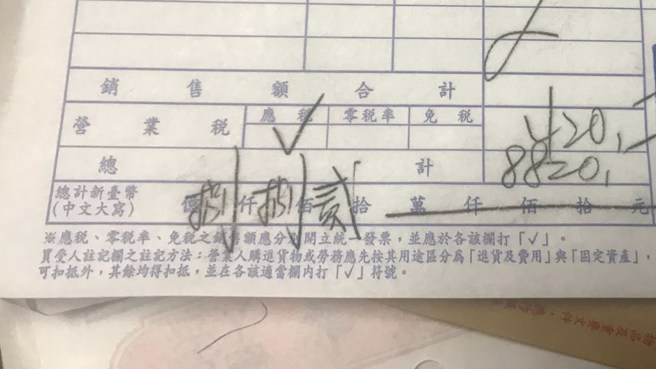 銷售額合計
營業稅 應稅 零稅率 免稅 420,
✓
總計 8820,
總計新臺幣
(中文大寫) 捌 仟 捌 佰 貳 拾 萬 仟 佰 拾 元
※應稅、零稅率、免稅之銷售額應分別開立統一發票，並應於各該欄打「✓」。
買受人註記欄之註記方法：營業人購進貨物或勞務應先按其用途區分為「進貨及費用」與「固定資產」，
可扣抵外，其餘均得扣抵，並在各該適當欄內打「✓」符號。